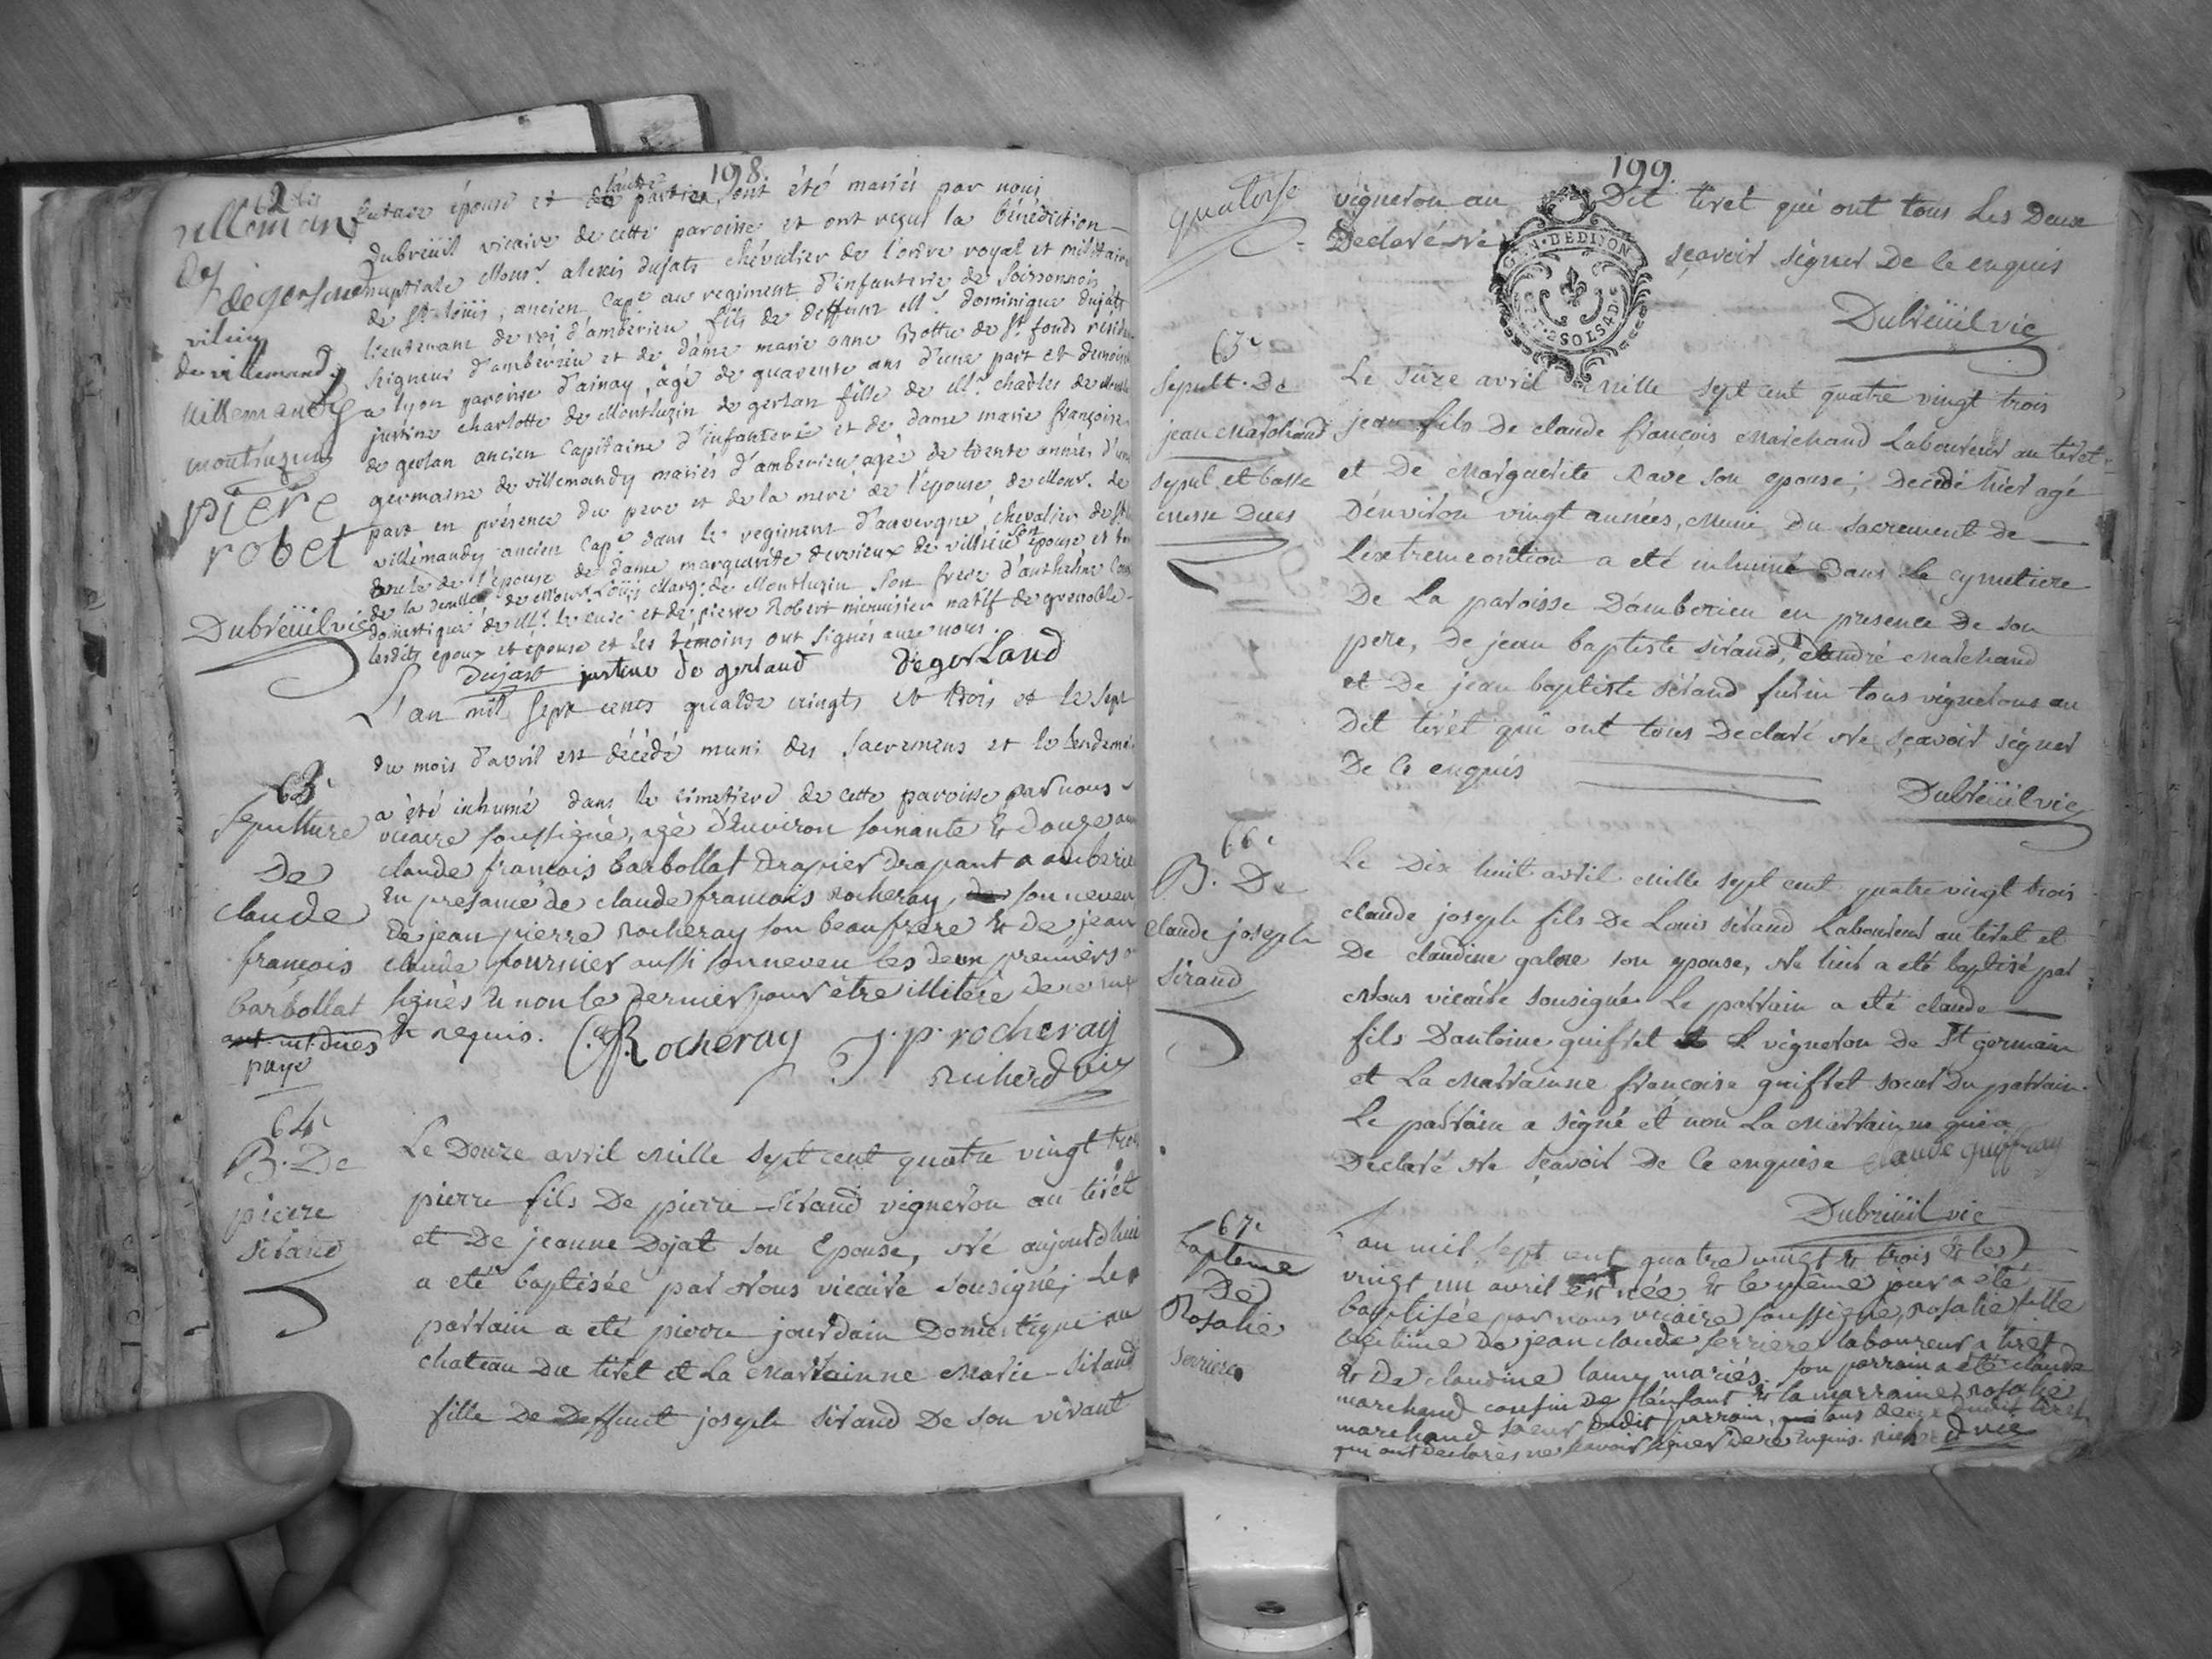 198.
62
future épouse et de partier, ont été mariés par nous
Dubreüil vicaire de cette paroisse et ont reçus la bénédiction
nuptiale Mons.r alexis dujats chévalier de l'ordre royal et militaire
de St. loüis, ancien cap.e au regiment d'infanterie de soissonnois
lieutenant de roi d'ambérieu, fils de deffunt M.r dominique dujats
seigneur d'ambérieu et de dame marie anne Bottu de St. fonds
a lyon paroisse d'ainay, âgé de quarente ans d'une part et
justine charlotte de Montluzin de gerlan fille de M.r charles de
de gerlan ancien capitaine d'infanterie et de dame marie françoise
germaine de villemandy mariés d'amberieu agée de trente années d'une
part en présence du pere et de la mere de l'épouse, de Mons.r de
villemandy ancien cap.e dans le regiment d'auvergne, chevalier de St.
oncle de l'épouse de dame marguerite dervieux de villieu son épouse et
de la de Mons.r Loüis Marg: de Montluzin son frere d'anthelme
domestique de M.r le curé et de pierre Robert menuisier natif de grenoble
lesdits époux et épouse et les témoins ont signés avec nous.
de gerland
villemandy
montluzin
piere
robet
Dubreüil vic
Dujast justine de gerland Degerland
L'an mil sept cents quatre vingts et trois et le sept
du mois d'avril est décédé muni des sacremens et le lendemain
a été inhumé dans le cimetiere de cette paroisse par nous
vicaire soussigné, agé d'environ soixante & douze ans
claude françois barbollat drapier drapant a amberieu
en presance de claude francois rocheray, son neveu
de jean pierre rocheray son beau frere & de jean
claude fournier aussi son neveu les deux premiers
signés & non le dernier pour être illitéré de ce
& requis. C.f. Rocheray J. p. rocheray
richerd vic
63e
Sepulture
De
claude
francois
barbollat
payé
64e
B. De
pierre
Sirand
Le Douze avril Mille sept cent quatre vingt trois
pierre fils De pierre Sirand vigneron au tiret
et De jeanne Dojat son Epouse, Né aujourd'hui
a eté baptisée par Nous vicaire sousigné; Le
parrain a eté pierre jourdain Domestique au
chateau du tiret et La Marrainne Marie Sirand
fille De Deffunt joseph Sirand De son vivant
199.
quatorse
vigneron au Dit tiret qui ont tous Les Deux
Declaré Ne sçavoir signer De ce enquis
GEN. DE DIJON
2 SOLS 4 D.
Dubreüil vic
65e
Sepult. De
jean Marchand
sepul et basse
messe Dues
Le seize avril Mille sept cent quatre vingt trois
jean fils De claude françois Marchand Laboureur au tiret
et De Marguerite Rave son epouse; Decedé hier agé
D'environ vingt années, Muni Du sacrement de
L'extremeontion a eté inhumé Dans Le cymetiere
De La paroisse D'amberieu en presence De son
pere, De jean baptiste sirand, d'andré Marchand
et De jean baptiste sirand furin tous vignerons au
Dit tirét qui ont tous Declaré Ne sçavoir signer
De ce enquis
Dubreüil vic
66e
B. De
claude joseph
Sirand
Le Dix huit avril Mille sept cent quatre vingt trois
claude joseph fils De Louis sirand Laboureur au tiret et
De claudine galoe son epouse, Né hier a eté baptisé par
Nous vicaire sousigné Le parrain a eté claude
fils D'antoine guiffret vigneron De St germain
et La Marrainne françoise guiffret soeur Du parrain
Le parrain a signé et non La Marrainne qui a
Declaré Ne sçavoir De ce enquise claude guiffray
Dubreüil vic
67e
baptême
De
Rosalie
serriere
L'an mil sept cent quatre vingt & trois & le
vingt un avril est née & le même jour a été
baptisée par nous vicaire soussigné, rosalie fille
legitime de jean claude serriere laboureur a tiret
& de claudine lamy mariés. son parrain a été claude
marchand cousin de l'enfant & la marraine rosalie
marchand soeur dudit parrain, tous deux dudit tiret
qui ont declarés ne savoir signer de ce enquis. richerd vic